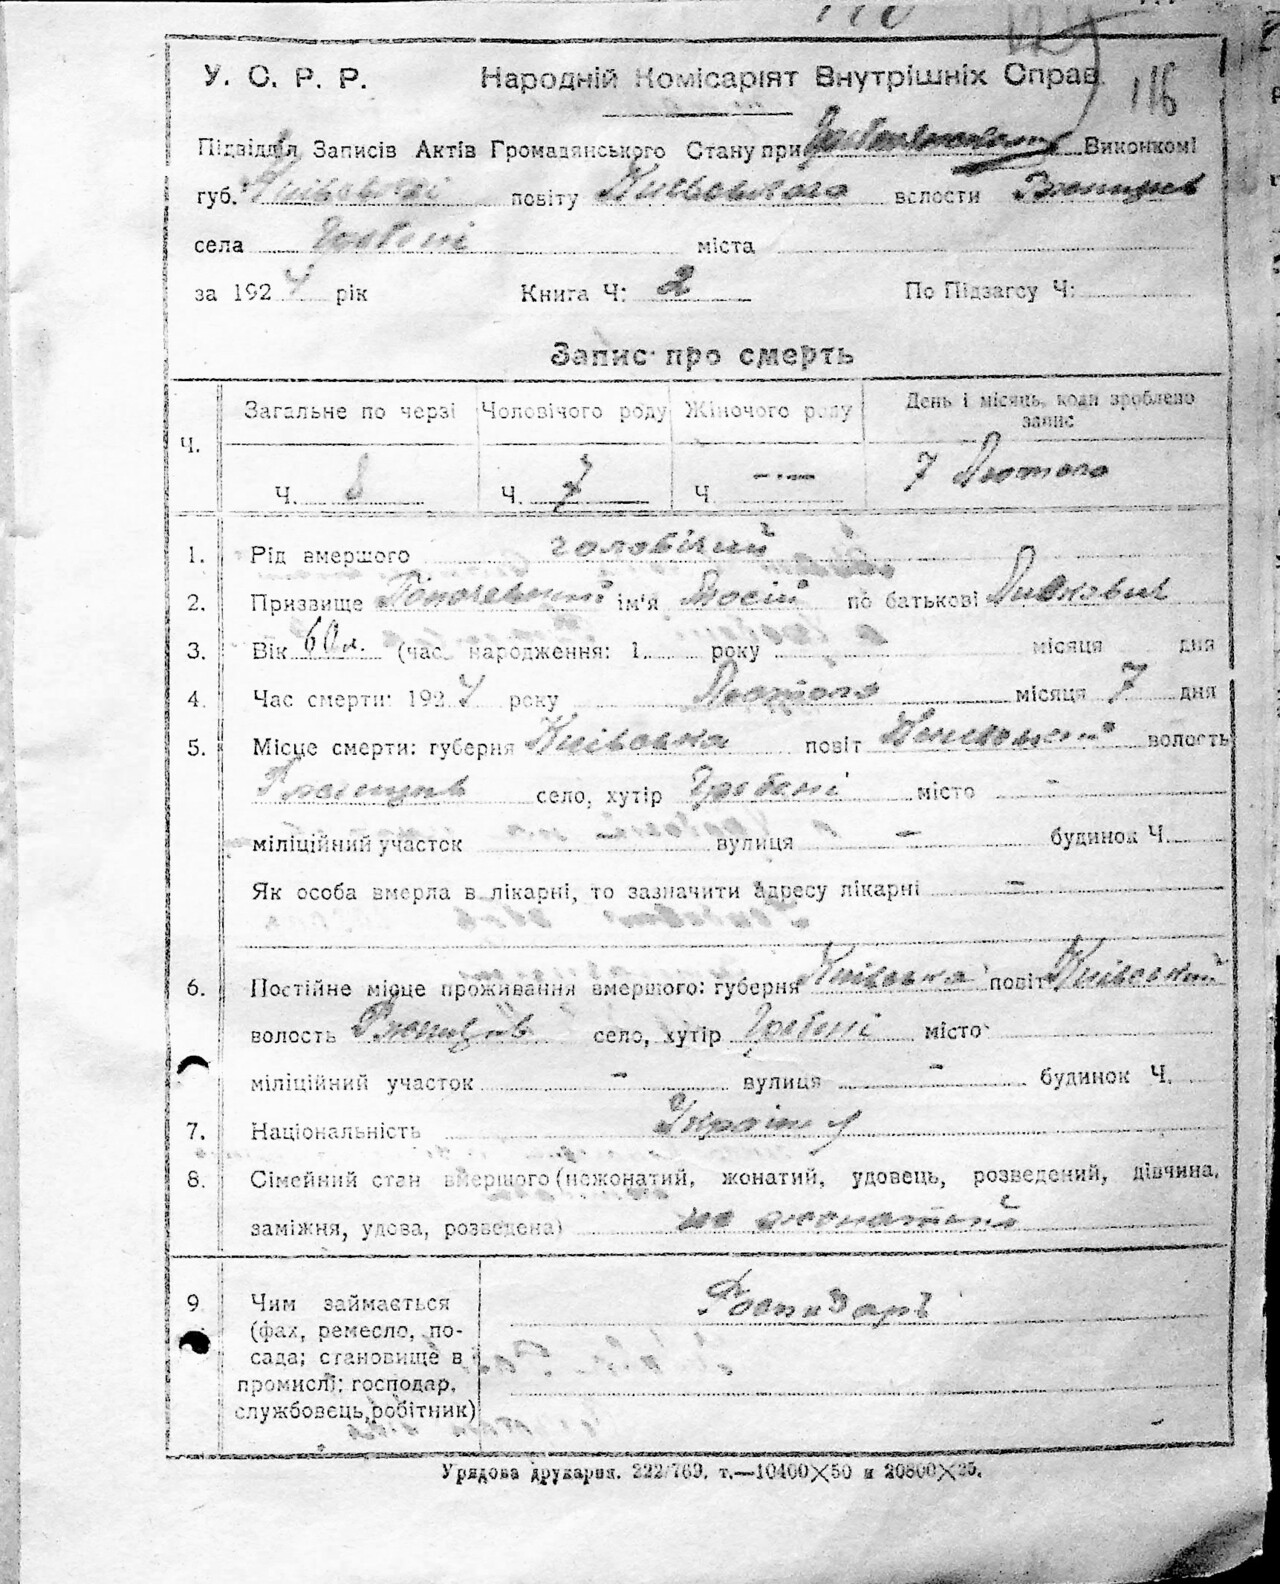 116
У. С. Р. Р. Народній Комісаріят Внутрішніх Справ.
Підвідділ Записів Актів Громадянського Стану при Виконкомі
губ. Київської повіту Київського волости
села Гребені міста
за 1924 рік Книга Ч: 2 По Підзагсу Ч:
Запис про смерть
Ч. Загальне по черзі Чоловічого роду Жіночого роду День і місяць, коли зроблено запис
Ч. 8 Ч. 7 Ч. — 7 Лютого
1. Рід вмершого чоловічий
2. Призвище ім'я Мосій по батькові
3. Вік 60 л. (час народження: 1 року місяця дня
4. Час смерти: 1924 року Лютого місяця 7 дня
5. Місце смерти: губерня Київська повіт волость
село, хутір Гребені місто -
міліційний участок вулиця - будинок Ч.
Як особа вмерла в лікарні, то зазначити адресу лікарні -
6. Постійне місце проживання вмершого: губерня Київська повіт Київський
волость село, хутір Гребені місто
міліційний участок - вулиця - будинок Ч.
7. Національність
8. Сімейний стан вмершого (нежонатий, жонатий, удовець, розведений, дівчина,
заміжня, удова, розведена) не жонатий
9. Чим займається Господарь
(фах, ремесло, по-
сада; становище в
промислі: господар,
службовець, робітник)
Урядова друкарня. 222/769. т.—10400×50 и 20800×25.